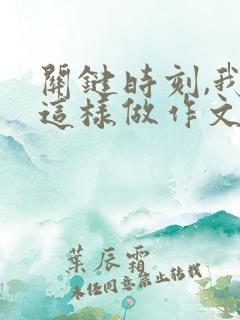 關鍵時刻,我
這樣做作文
葉辰霜
未經同意禁止轉載